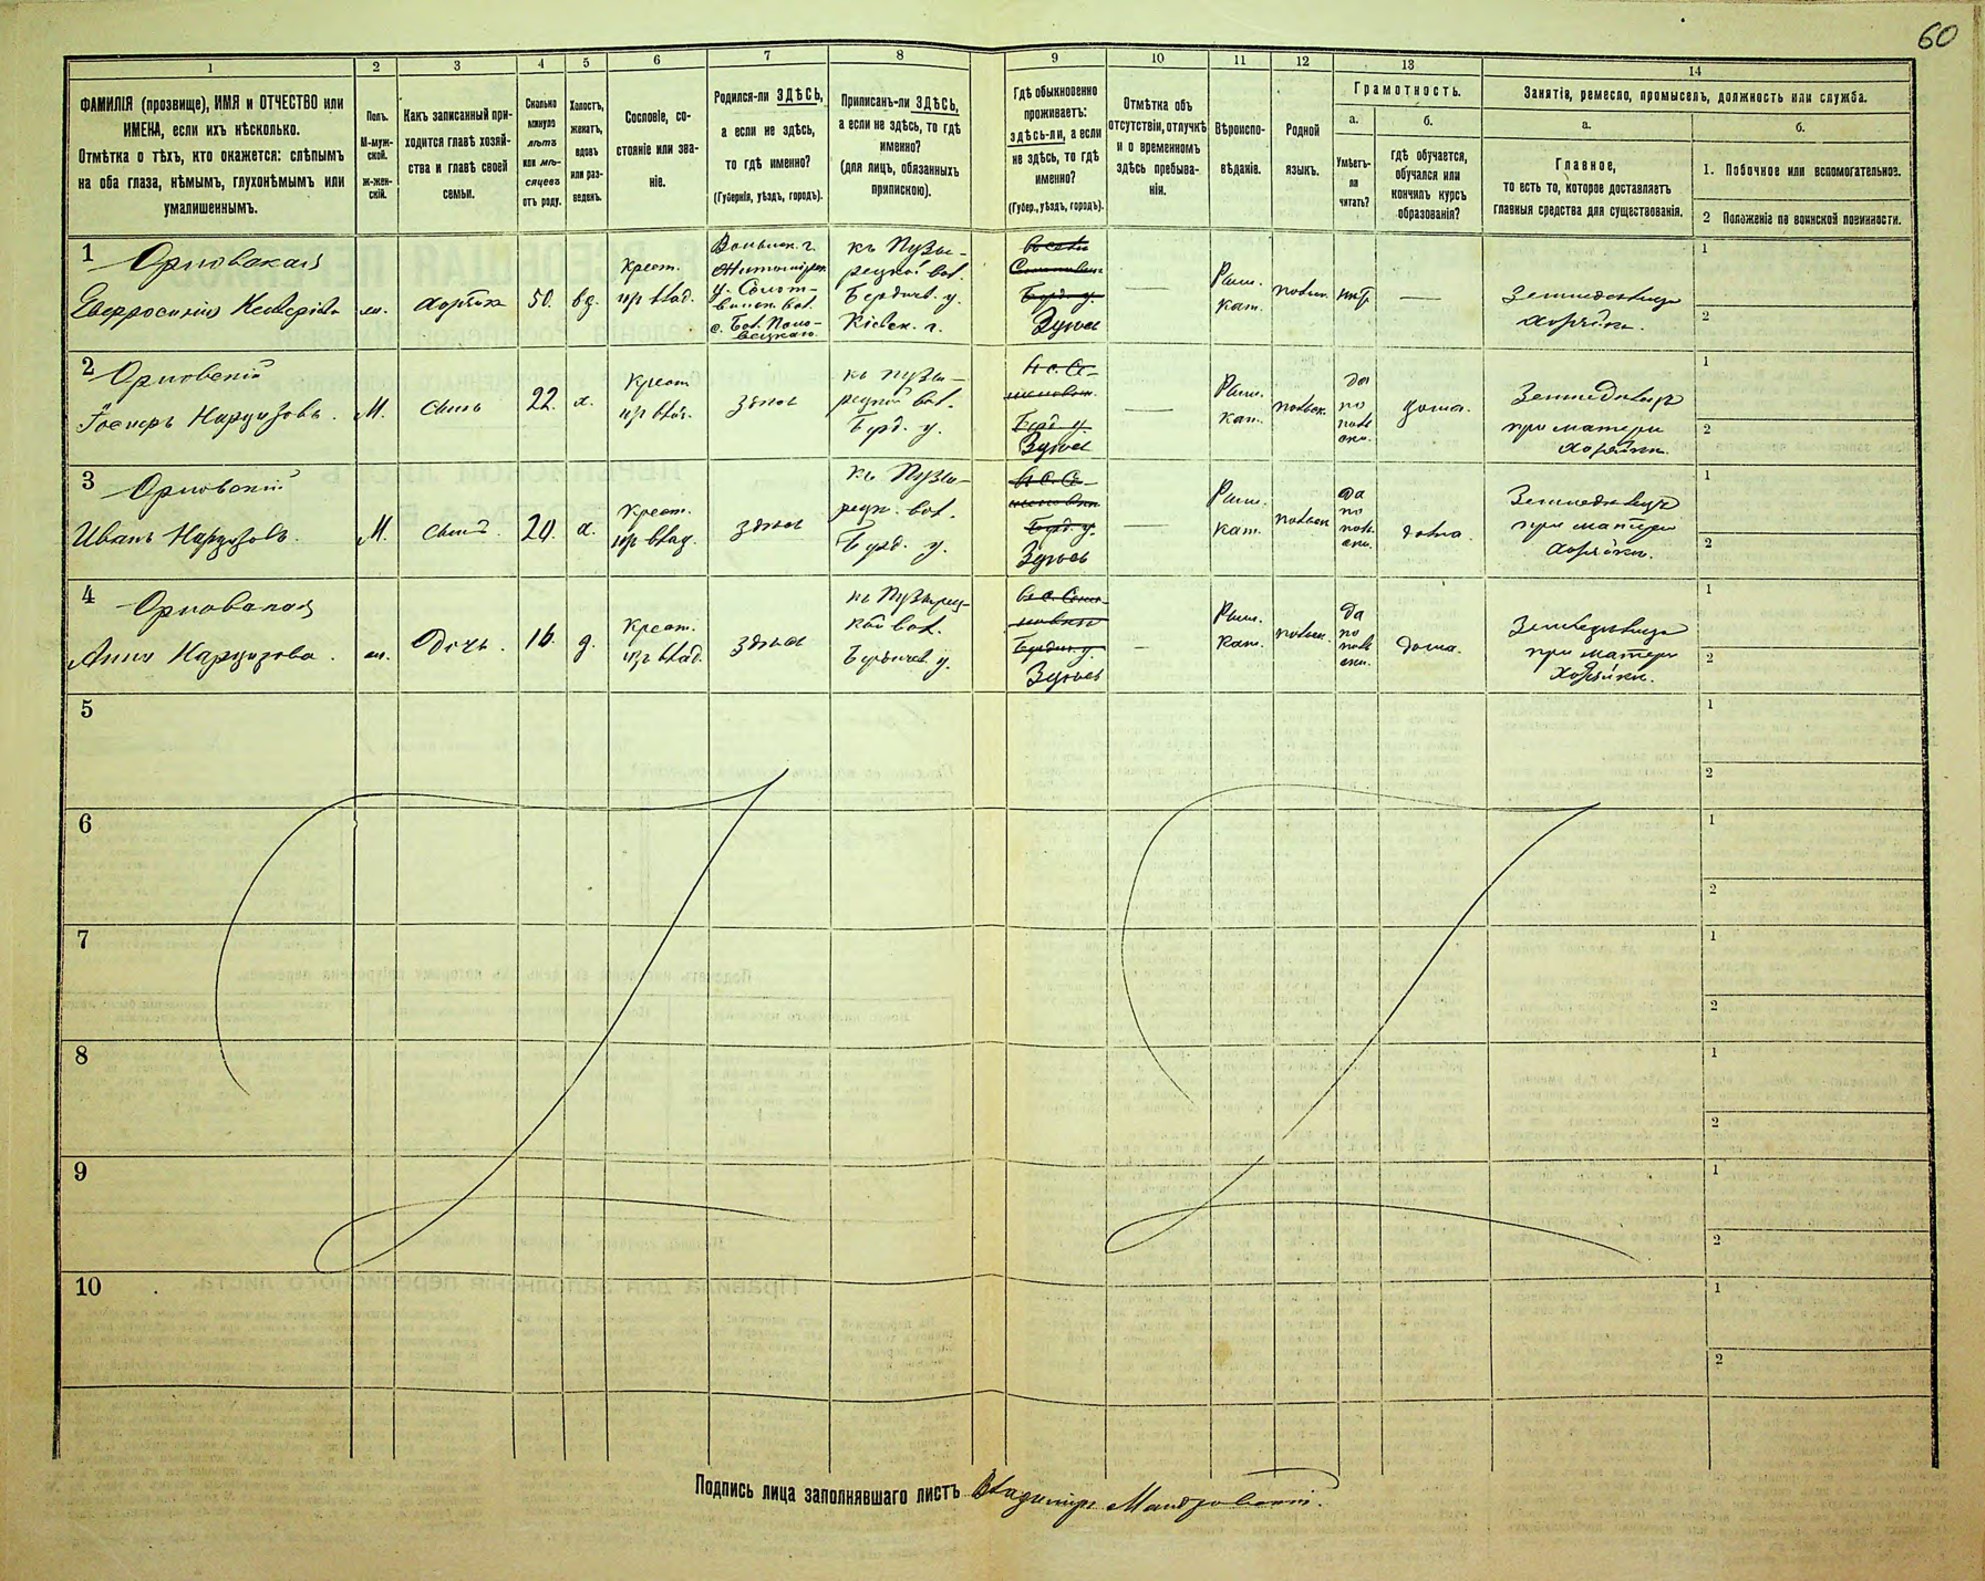 60
1 2 3 4 5 6 7 8 9 10 11 12 13 14
ФАМИЛІЯ (прозвище), ИМЯ и ОТЧЕСТВО или
ИМЕНА, если ихъ нѣсколько.
Отмѣтка о тѣхъ, кто окажется: слѣпымъ
на оба глаза, нѣмымъ, глухонѣмымъ или
умалишеннымъ.
Полъ.
М-муж-
ской.
ж-жен-
скій.
Какъ записанный при-
ходится главѣ хозяй-
ства и главѣ своей
семьи.
Сколько
минуло
лѣтъ
или мѣ-
сяцевъ
отъ роду.
Холостъ,
женатъ,
вдовъ
или раз-
веденъ.
Сословіе, со-
стояніе или зва-
ніе.
Родился-ли ЗДѢСЬ,
а если не здѣсь,
то гдѣ именно?
(Губернія, уѣздъ, городъ).
Приписанъ-ли ЗДѢСЬ,
а если не здѣсь, то гдѣ
именно?
(для лицъ, обязанныхъ
припискою).
Гдѣ обыкновенно
проживаетъ:
здѣсь-ли, а если
не здѣсь, то гдѣ
именно?
(Губер., уѣздъ, городъ).
Отмѣтка объ
отсутствіи, отлучкѣ
и о временномъ
здѣсь пребыва-
ніи.
Вѣроиспо-
вѣданіе.
Родной
языкъ.
Грамотность.
а.
Умѣетъ-
ли
читать?
б.
гдѣ обучается,
обучался или
кончилъ курсъ
образованія?
Занятія, ремесло, промыселъ, должность или служба.
а.
Главное,
то есть то, которое доставляетъ
главныя средства для существованія.
б.
1. Побочное или вспомогательное.
2 Положеніе по воинской повинности.
1 Орловская
ж.
50.
вд.
Крест.
из влад.
Волынск. г.
Житомірск.
у.
къ Пузы-
рецкой вол.
Бердич. у.
Кіевск. г.
Здѣсь
—
Рим.
Кат.
польск.
нѣт
—
хозяйка.
1
2
2 Орловскій
Іосифъ Нарцизовъ.
М.
сынъ
22.
х.
Крест
из влад.
здѣсь
къ Пузы-
рецкой вол.
Берд. у.
Берд. у.
Здѣсь
—
Рим.
Кат.
польск.
да
по
поль
ски.
дома.
Земледѣлецъ
при матери
хозяйки.
1
2
3 Орловскій
Иванъ Нарцизовъ.
М.
сынъ.
20.
х.
Крест.
из влад.
здѣсь
къ Пузы-
рецк. вол.
Берд. у.
Берд. у.
Здѣсь
—
Рим.
Кат.
польск
да
по
поль
ски.
дома.
Земледѣлецъ
при матери
хозяйки.
1
2
4 Орловская
Анна Нарцизова.
ж.
Дочь.
16.
д.
Крест.
изъ влад.
здѣсь
къ Пузырец-
кой вол.
Бердичев. у.
Бердич. у.
Здѣсь
—
Рим.
Кат.
польск.
да
по
поль
ски.
дома.
при матери
хозяйки.
1
2
5
1
2
6
1
2
7
1
2
8
1
2
9
1
2
10
1
2
Подпись лица заполнявшаго листъ Владиміръ